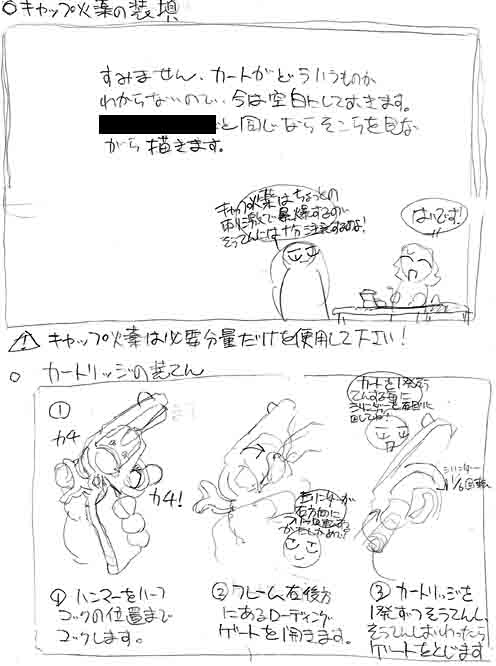 ○キャップ火薬の装填
すみません、カートがどういうものか
わからないので、今は空白にしておきます。
と同じならそこらを見な
がら描きます。
キャップ火薬はちょっとの
刺激で暴爆するので
そうてんには十分注意するのよ!
はいです!
⚠ キャップ火薬は必要分量だけを使用して下エい!
○ カートリッジの装てん
①
カチ
カチ!
カートを1発そう
てんする毎に
シリンダーを右回りに
回してね!
シリンダー
1/6回転
① ハンマーをハーフ
コックの位置まで
コックします。
② フレーム右後方
にあるローディング
ゲートを開きます。
③ カートリッジを
1発ずつそうてんし、
そうてんしおわったら
ゲートをとじます